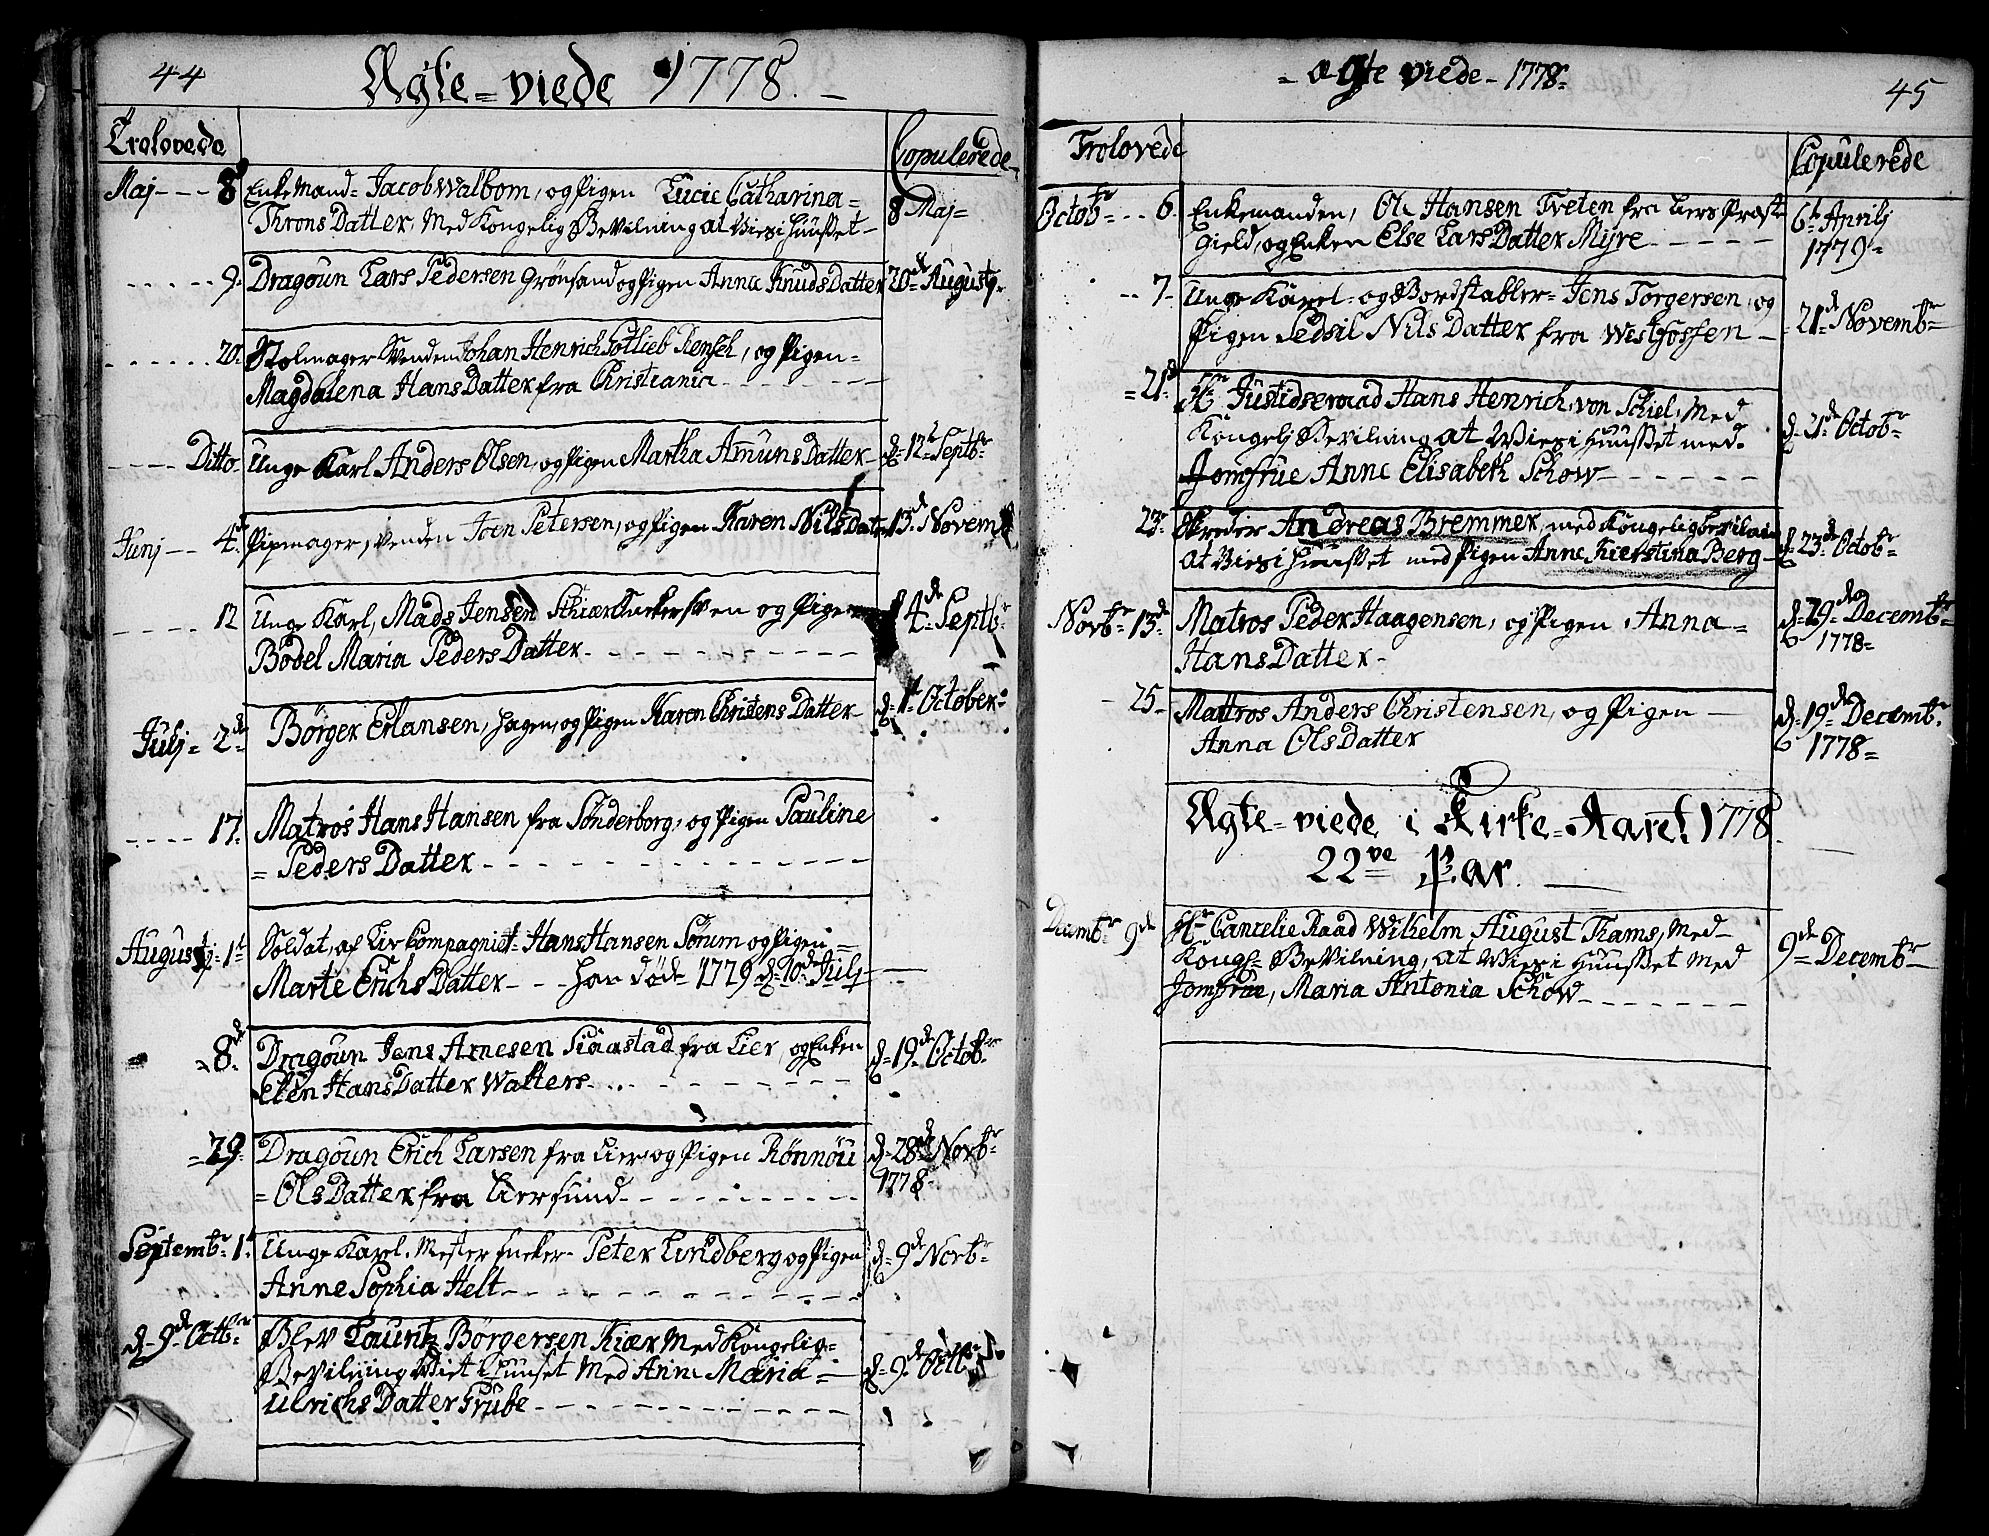 44
Ægte=viede 1778.
Trolovede
Copulerede
Maj - - - 8d
Enke Mand= Jacob Walbom, og Pigen Lucie Catharina=
Throns Datter, Med Kongelig Bevilning at Vies i Huusset
8 Maj=
- - - - - 9.
Dragoun Lars Pedersen Grönsand og Pigen Anna Knuds Datter
20de Augustj
- - - - - 20.
Stolmager Svenden Johan Henrich Gotlieb, og Pigen=
Magdalena Hans Datter fra Christiania
- - - - Ditto
Unge Karl Anders Olsen, og Pigen Martha Amuns Datter
d. 12te Septbr
Junj - - 4de
Pipmager Svenden Joen Petersen, og Pigen Karen Nils datter
13de Novemb
- - - - - 12
Unge Karl, Mads Jensen og Pigen
Bodel Maria Peders Datter
14de Septbr
Julj= 2de
Börger Erlansen, Hagen, og Pigen Karen Christens Datter
d. 1t October
- - - - 17.
Matros Hans Hansen fra Sönderborg, og Pigen Pauline
= Peders Datter
Augustj 1t
Soldat, af Liv Compagniet= Hans Hansen Sörum og Pigen=
Marte Erichs Datter - - - Han död 1779 d. 10de Julj
8de
Dragoun Jens Arnesen fra Lier, og Enken
Elen Hans Datter Walters
d= 19de Octobr
=29.
Dragoun Erich Larsen fra Lier og Pigen Rönnöu
= Ols Datter fra Liersund
d= 28de Novbr
1778
Septembr 1t
Unge Karel. Mester Peter Lundberg og Pigen
Anne Sophia Helt
d= 9de Novbr
d= 9de Octbr
Blev Lauritz Börgersen Kiær Med Kongelig=
Bevilning Viet i Huuset Med Anne Maria=
Ulrichs Datter Grube
d= 9de Octbr
= Ægte viede - 1778=
45
Trolovede
Copulerede
Octobr= - - 6.
Enkemanden, Ole Hansen Tveten fra Liers Præste
gield, og Enken Else Lars Datter Myre
6t Aprilj
1779=
- - 7-
Unge Karel= og Bordstabler= Jens Torgersen, og
Pigen Sedsil Nils Datter fra Westfossen
21de Novembr
=21de
Hr Justidseraad Hans Henrich, von Schiel, Med
Kongelj Bevilning at Vies i Huusset med.
Jomfrue Anne Elisabeth Schow
d= 21de Octobr
23=
Skreder Andreas Bremmer, med Kongelig bevilning
at Vies i Huusset med Pigen Anne Kierstina Berg
d= 23de Octobr
Novbr 13de
Matros Peder Haagensen, og Pigen, Anna=
Hans Datter
d= 19de Decembr
1778=
- 25.
Mattros Anders Christensen, og Pigen
Anna Ols Datter
d= 19de Decembr
1778=
Ægte=viede i Kirke=Aaret 1778
22ve Par.
Decembr 9de
Hr Cancelie Raad Wilhelm August Thams, Med
Kongl= Bevilning, at Vies i Huusset Med
Jomfrue, Maria Antonia Schow
9de Decembr